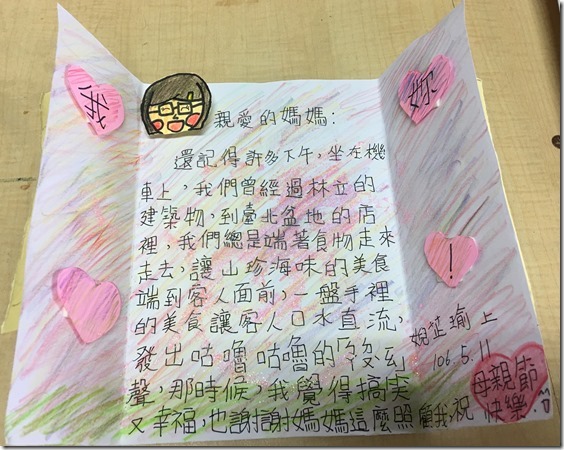 我
妳
親愛的媽媽：
還記得許多下午，坐在機
車上，我們曾經過林立的
建築物，到臺北盆地的店
裡，我們總是端著食物走來
走去，讓山珍海味的美食
端到客人面前，一盤手裡
的美食讓客人口水直流，
發出咕嚕咕嚕的「ㄍㄨ」
聲，那時候，我覺得搞笑
又幸福，也謝謝媽媽這麼照顧我，祝
！
芷瑜上
106.5.11
母親節
快樂